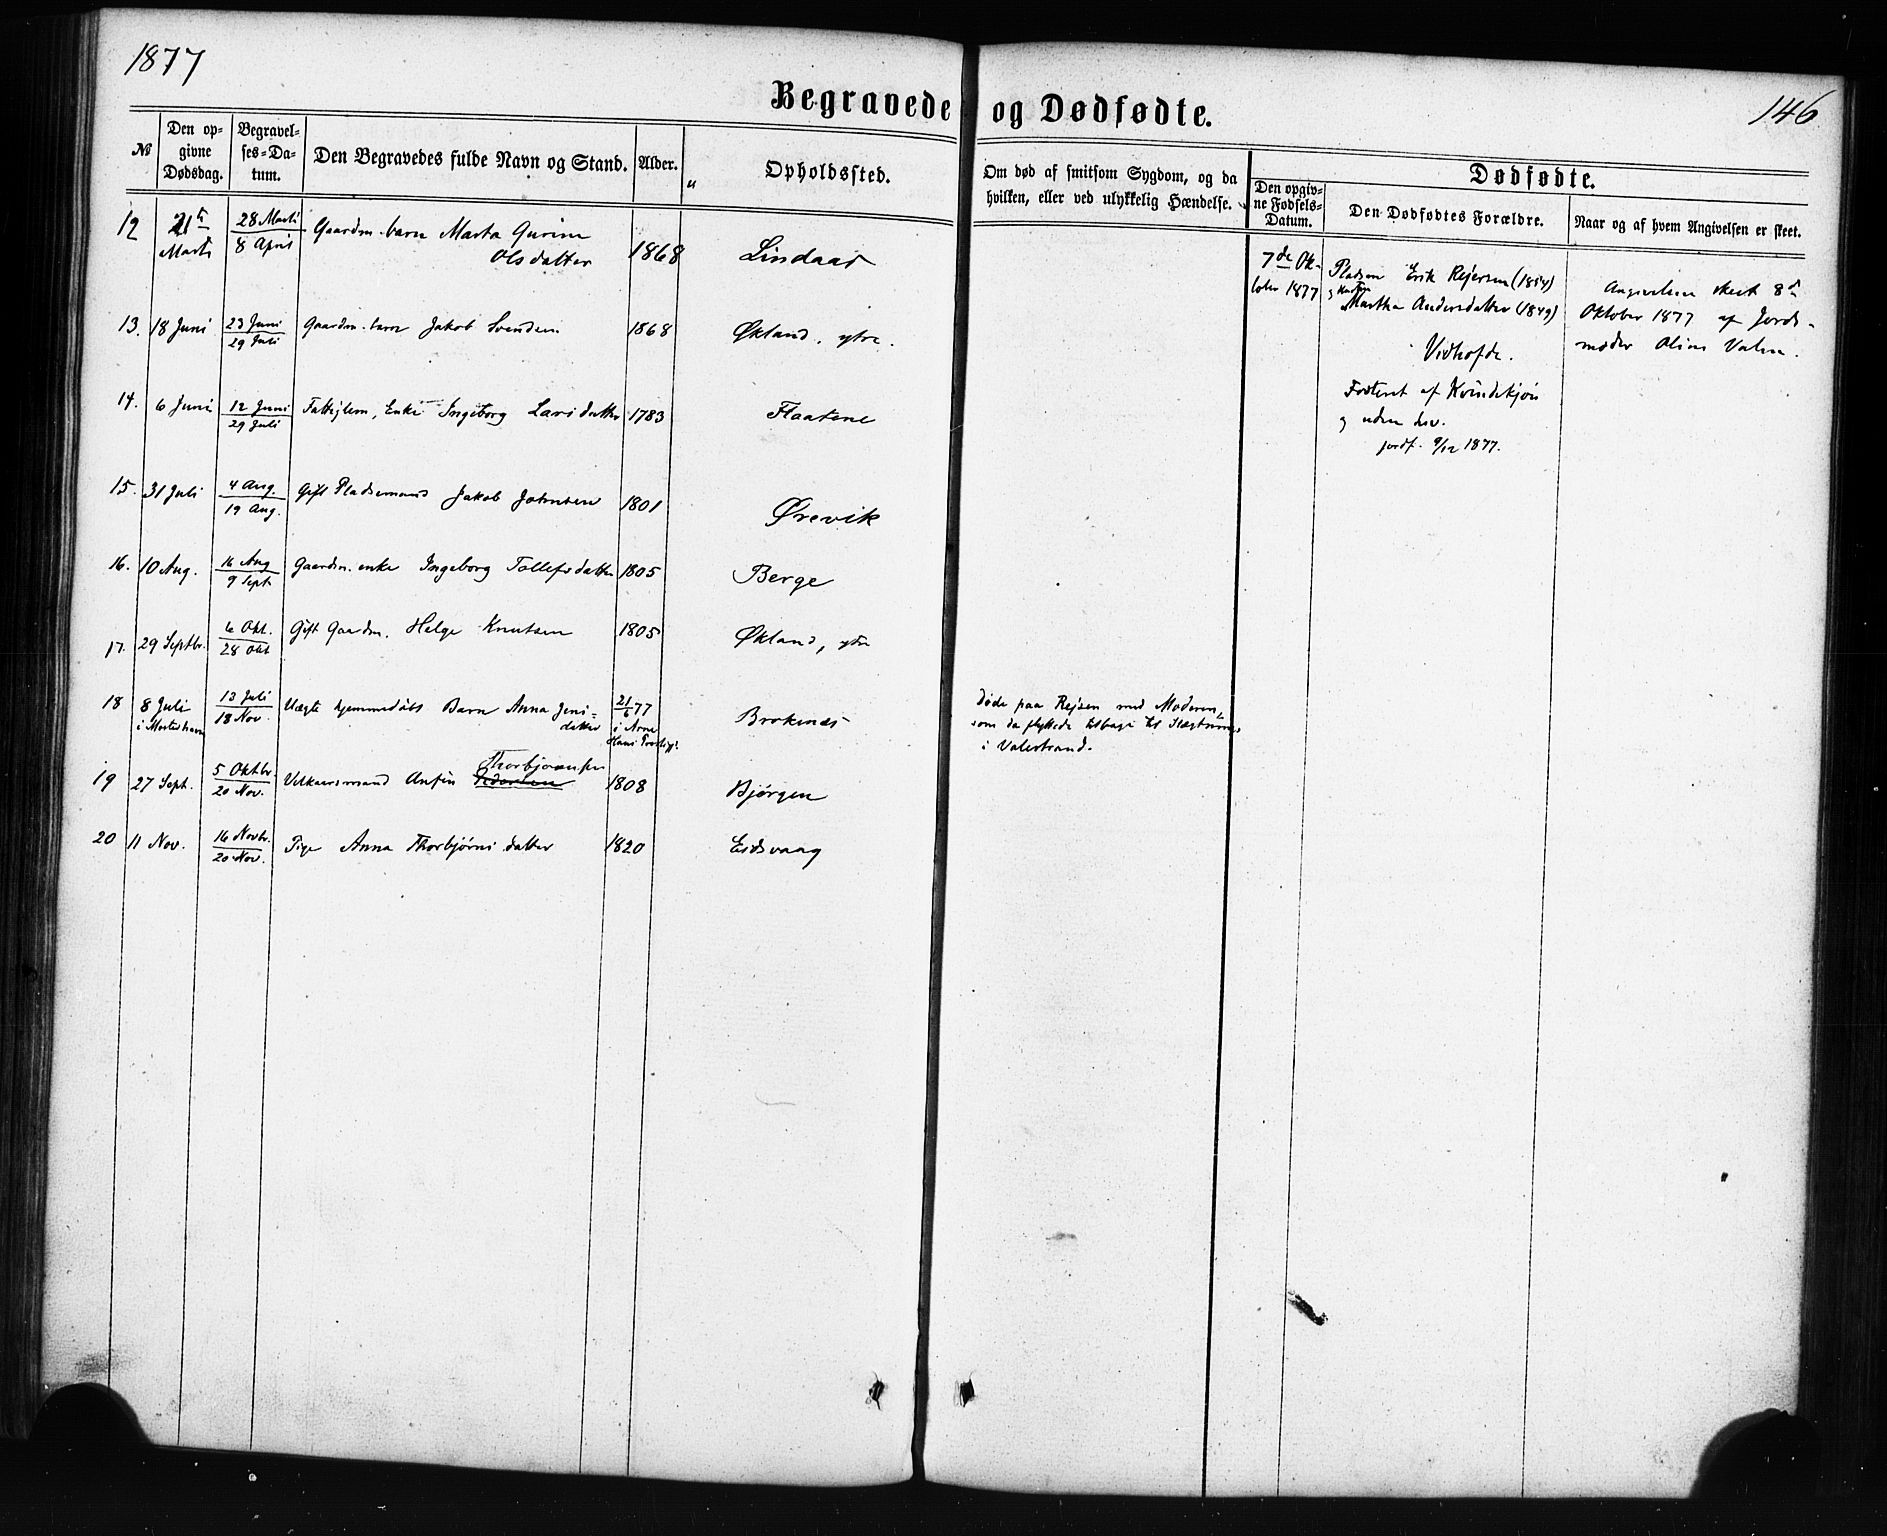 1877
Begravede og Dødfødte.
146
№
Den op-
givne
Dødsdag.
Begravel-
ses-Da-
tum.
Den Begravedes fulde Navn og Stand.
Alder.
"
Opholdssted.
Om død af smitsom Sygdom, og da
hvilken, eller ved ulykkelig Hændelse.
Dødfødte.
Den opgiv-
ne Fødsels-
Datum.
Den Dødfødtes Forældre.
Naar og af hvem Angivelsen er skeet.
12 21 Marts 28 Marts 8 April Gaardm. barn Marta Gurine
Olsdatter 1868 Lindaas
13. 18 Juni 23 Juni 29 Juli Gaardm. barn Jakob Svendsen 1868 Økland, ytre.
14. 6 Juni 12 Juni 29 Juli Enke Ingeborg Larsdatter 1783 Flaatene
15. 31 Juli 4 Aug. 19 Aug. Gift Pladsemand Jakob Johnsen 1801 Ørevik
16. 10 Aug. 16 Aug 9 Sept. Gaardm. enke Ingeborg Tollefsdatter 1805 Berge
17. 29 Septbr. 6 Okt. 28 Okt Gift Gaardm. Helge Knutsen 1805 Økland, ytre
18 8 Juli 13 Juli 18 Nov. Uægte hjemmedøbt Barn Anna Jens-
datter 21/6 77 Broknæs
Døde paa Rejsen med Moderen,
som da flyttede tilbage til Slægtninge
i Valestrand.
19 27 Sept. 5 Oktbr. 20 Nov. Anfin Thorbjørnsen 1808 Bjørgen
20 11 Nov. 16 Novbr. 20 Nov. Pige Anna Thorbjørnsdatter 1820 Eidsvaag
7de Ok-
tober 1877
Pladsm Erik Rejersen (1854)
Martha Andersdatter (1849)
Vidhofde.
Fosteret af Kvindekjøn
og uden Liv.
jordf. 9/12 1877.
Angivelsen skeet 8
Oktober 1877 af Jord-
moder Oline Valen.